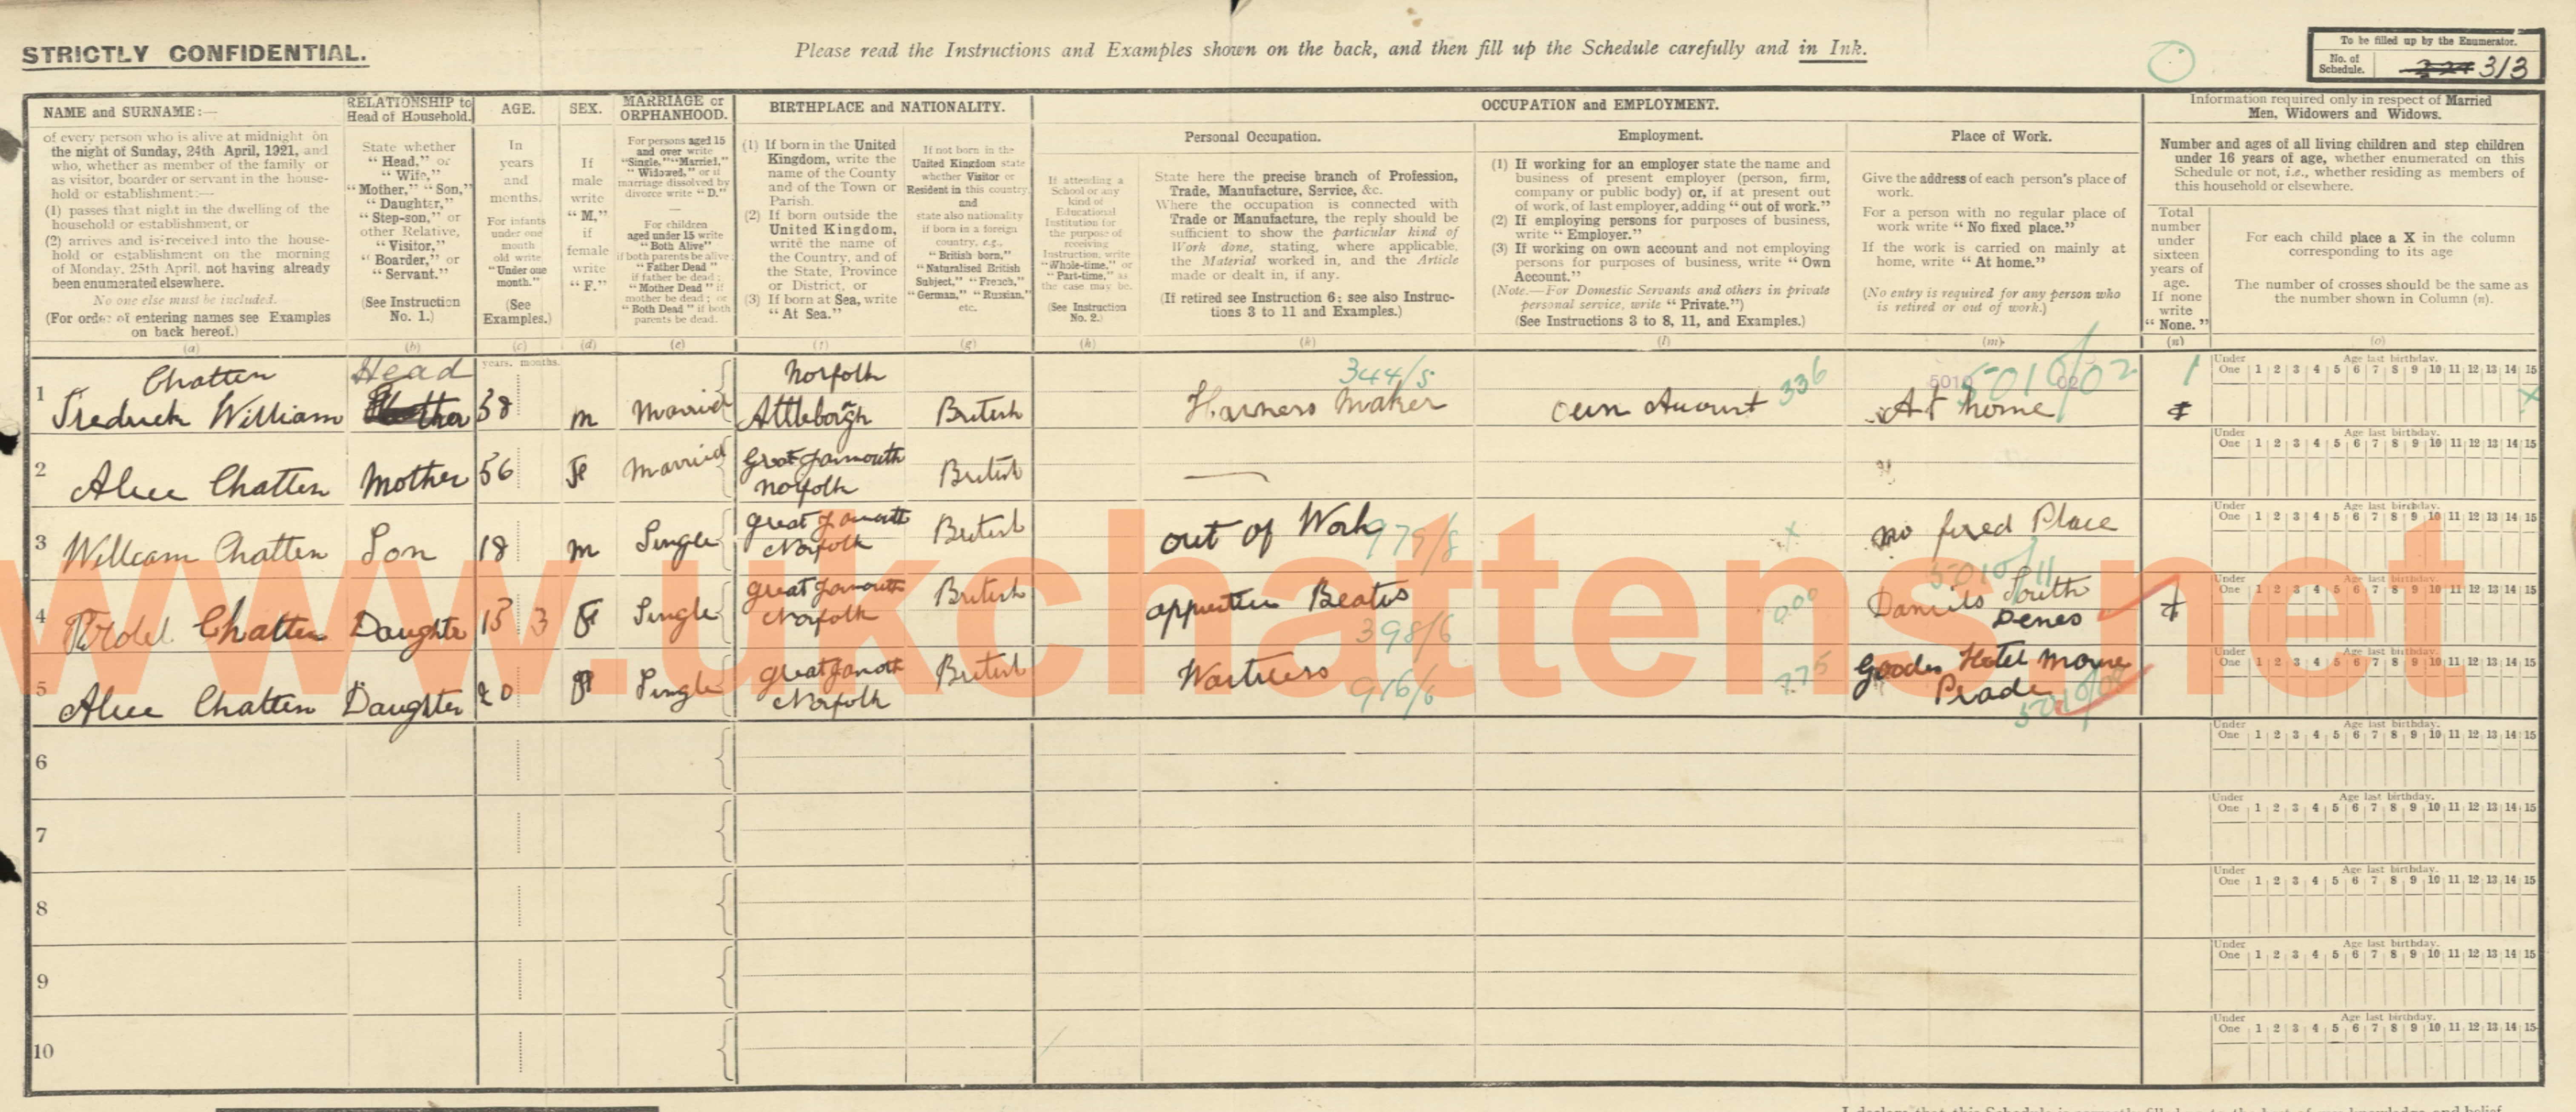 STRICTLY CONFIDENTIAL.
Please read the Instructions and Examples shown on the back, and then fill up the Schedule carefully and in Ink.
To be filled up by the Enumerator.
No. of Schedule. 313
NAME and SURNAME:—
of every person who is alive at midnight on
the night of Sunday, 24th April, 1921, and
who, whether as member of the family or
as visitor, boarder or servant in the house-
hold or establishment:—
(1) passes that night in the dwelling of the
household or establishment, or
(2) arrives and is received into the house-
hold or establishment on the morning
of Monday, 25th April, not having already
been enumerated elsewhere.
No one else must be included.
(For order of entering names see Examples
on back hereof.)
(a)
RELATIONSHIP to
Head of Household.
State whether
"Head," or
"Wife,"
"Mother," "Son,"
"Daughter,"
"Step-son," or
other Relative,
"Visitor,"
"Boarder," or
"Servant."
(See Instruction
No. 1.)
(b)
AGE.
In
years
and
months.
For infants
under one
month
old write
"Under one
month."
(See
Examples.)
(c)
SEX.
If
male
write
"M,"
if
female
write
"F."
(d)
MARRIAGE or
ORPHANHOOD.
For persons aged 15
and over write
"Single," "Married,"
"Widowed," or if
marriage dissolved by
divorce write "D."
For children
aged under 15 write
"Both Alive"
if both parents be alive;
"Father Dead"
if father be dead;
"Mother Dead" if
mother be dead; or
"Both Dead" if both
parents be dead.
(e)
BIRTHPLACE and NATIONALITY.
(1) If born in the United
Kingdom, write the
name of the County
and of the Town or
Parish.
(2) If born outside the
United Kingdom,
write the name of
the Country, and of
the State, Province
or District, or
(3) If born at Sea, write
"At Sea."
(f)
If not born in the
United Kingdom state
whether Visitor or
Resident in this country,
and
state also nationality
if born in a foreign
country, e.g.,
"British born,"
"Naturalised British
Subject," "French,"
"German," "Russian,"
etc.
(g)
OCCUPATION and EMPLOYMENT.
If attending a
School or any
kind of
Educational
Institution for
the purpose of
receiving
Instruction, write
"Whole-time," or
"Part-time," as
the case may be.
(See Instruction
No. 2.)
(h)
Personal Occupation.
State here the precise branch of Profession,
Trade, Manufacture, Service, &c.
Where the occupation is connected with
Trade or Manufacture, the reply should be
sufficient to show the particular kind of
Work done, stating, where applicable,
the Material worked in, and the Article
made or dealt in, if any.
(If retired see Instruction 6; see also Instruc-
tions 3 to 11 and Examples.)
(k)
Employment.
(1) If working for an employer state the name and
business of present employer (person, firm,
company or public body) or, if at present out
of work, of last employer, adding "out of work."
(2) If employing persons for purposes of business,
write "Employer."
(3) If working on own account and not employing
persons for purposes of business, write "Own
Account."
(Note.—For Domestic Servants and others in private
personal service, write "Private.")
(See Instructions 3 to 8, 11, and Examples.)
(l)
Place of Work.
Give the address of each person's place of
work.
For a person with no regular place of
work write "No fixed place."
If the work is carried on mainly at
home, write "At home."
(No entry is required for any person who
is retired or out of work.)
(m)
Information required only in respect of Married
Men, Widowers and Widows.
Number and ages of all living children and step children
under 16 years of age, whether enumerated on this
Schedule or not, i.e., whether residing as members of
this household or elsewhere.
Total
number
under
sixteen
years of
age.
If none
write
"None."
(n)
For each child place a X in the column
corresponding to its age
The number of crosses should be the same as
the number shown in Column (n).
(o)
years. months.
1 Chatten Head Norfolk 344/5 1
Fredrick William 58 m Married Attleboro'gh British Harness Maker own Account 336 At home
Under One Age last birthday. 1 2 3 4 5 6 7 8 9 10 11 12 13 14 15 X
2 Alice Chatten Mother 56 Fe Married Great Yarmouth Norfolk British —
Under One Age last birthday. 1 2 3 4 5 6 7 8 9 10 11 12 13 14 15
3 William Chatten Son 18 m Single Great Yarmouth Norfolk British out of Work 979/8 x no fixed Place
Under One Age last birthday. 1 2 3 4 5 6 7 8 9 10 11 12 13 14 15
4 Chatten Daughte 15 3 Fe Single Great Yarmouth Norfolk British Beatos 398/6 000 South Denes
Under One Age last birthday. 1 2 3 4 5 6 7 8 9 10 11 12 13 14 15
5 Alice Chatten Daughter 20 Single Great Yarmouth Norfolk British Waitress 916/6 775 Goodes Hotel
Under One Age last birthday. 1 2 3 4 5 6 7 8 9 10 11 12 13 14 15
6
Under One Age last birthday. 1 2 3 4 5 6 7 8 9 10 11 12 13 14 15
7
Under One Age last birthday. 1 2 3 4 5 6 7 8 9 10 11 12 13 14 15
8
Under One Age last birthday. 1 2 3 4 5 6 7 8 9 10 11 12 13 14 15
9
Under One Age last birthday. 1 2 3 4 5 6 7 8 9 10 11 12 13 14 15
10
Under One Age last birthday. 1 2 3 4 5 6 7 8 9 10 11 12 13 14 15
www.ukchattens.net